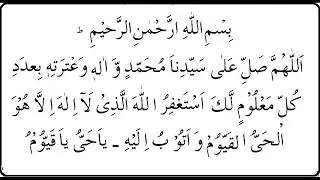 بِسْمِ اللّٰهِ الرَّحْمٰنِ الرَّحِيْمِ ؕ
اَللّٰهُمَّ صَلِّ عَلٰى سَيِّدِنَا مُحَمَّدٍ وَّ اٰلِهٖ وَعِتْرَتِهٖ بِعَدَدِ
كُلِّ مَعْلُوْمٍ لَّكَ اَسْتَغْفِرُ اللّٰهَ الَّذِىْ لَآ اِلٰهَ اِلَّا هُوَ
الْحَىُّ الْقَيُّوْمُ وَ اَتُوْبُ اِلَيْهِ ۔ يَاحَىُّ يَا قَيُّوْمُ